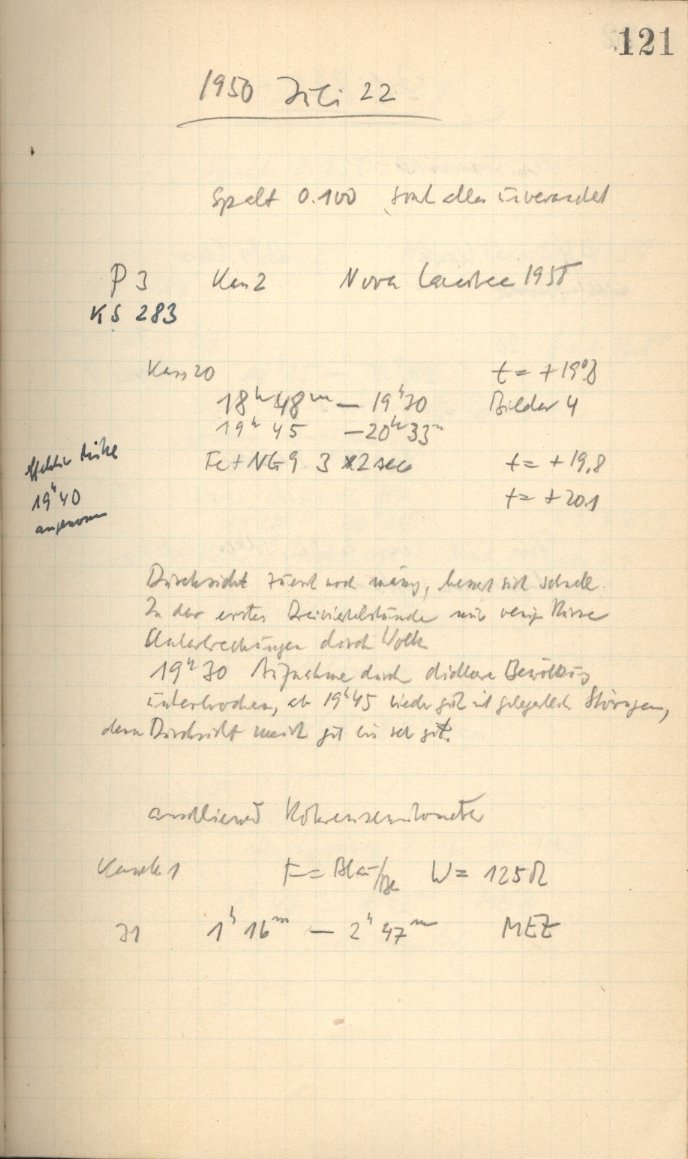 121
1950 Juli 22
Spalt 0.100 sonst alles unverändert
P 3 Kam 2 Nova Lacertae 1950
KS 283
Kass 20 t = +19°8
18h 48m — 19h30 Bilder 4
19h 45 — 20h 33m
Fe + NG9 3 x 2 sec t = + 19,8
effektive Mitte
19h40 t = + 20.1
angenommen
Durchsicht zuerst noch mässig, bessert sich schnell.
In der ersten Dreiviertelstunde nur wenig kurze
Unterbrechungen durch Wolken
19h30 Aufnahme durch dichtere Bewölkung
unterbrochen, ab 19h45 wieder gut mit gelegentlichen Störungen,
denn Durchsicht meist gut bis sehr gut.
anschliessend
Kassette 1 F = Blau W = 125 Ω
J1 1h 16m — 2h 47m MEZ